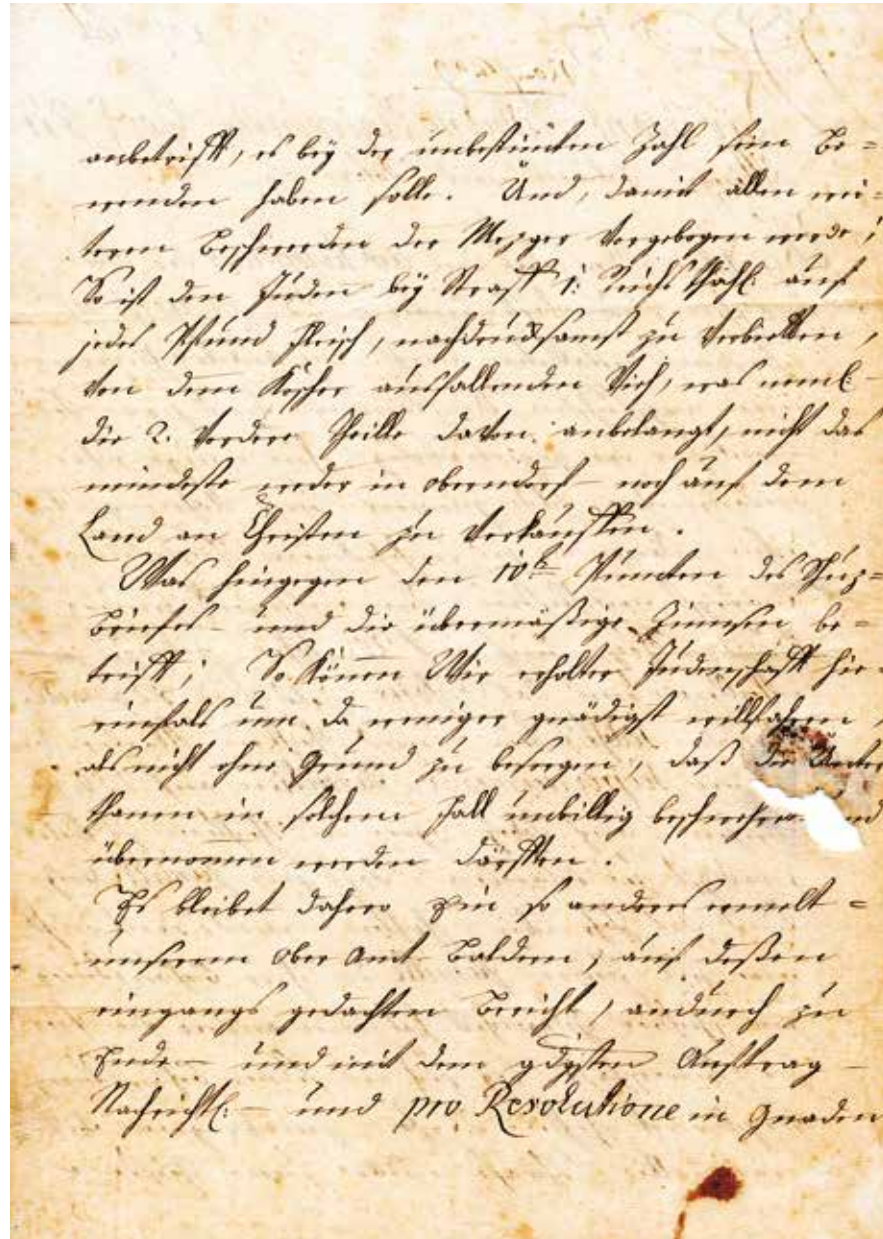 anbetrifft, es bey der unbestimten Zahl sein Be=
wenden haben solle. Und, damit allen wei=
teren Beschwerden der Mezger Vorgebogen werde;
So ist den Juden bey Straff 1: Reichsthahl: auf
jedes Pfund Fleisch, nachdruksamst zu Verbietten,
Von dem Koscher ausfallenden Vieh, was neml:
die 2. Vordere Theille davon anbelangt, nicht das
mindeste weder in oberndorf- noch auf dem
Land an Christen zu Verkauffen.
Was hingegen den 10t Puncten des Schuz=
Briefes- und die übermäßige Zinnsen be=
trifft; So Können Wir erholter Judenschafft hie=
rinfals um da weniger gnädigst willfahren,
als nicht ohne Grund zu besorgen, daß die Unter
thanen in solchem Fall unbillig beschwehret und
übernommen werden dörfften.
Es bleibet dahero ein so anderes ermelt=
unserem Ober Amt Baldern, auf deßen
eingangs gedachten Bericht, andurch zu
Ende- und mit dem gdgsten Auftrag
Nachrichtl:- und pro Resolutione in Gnaden